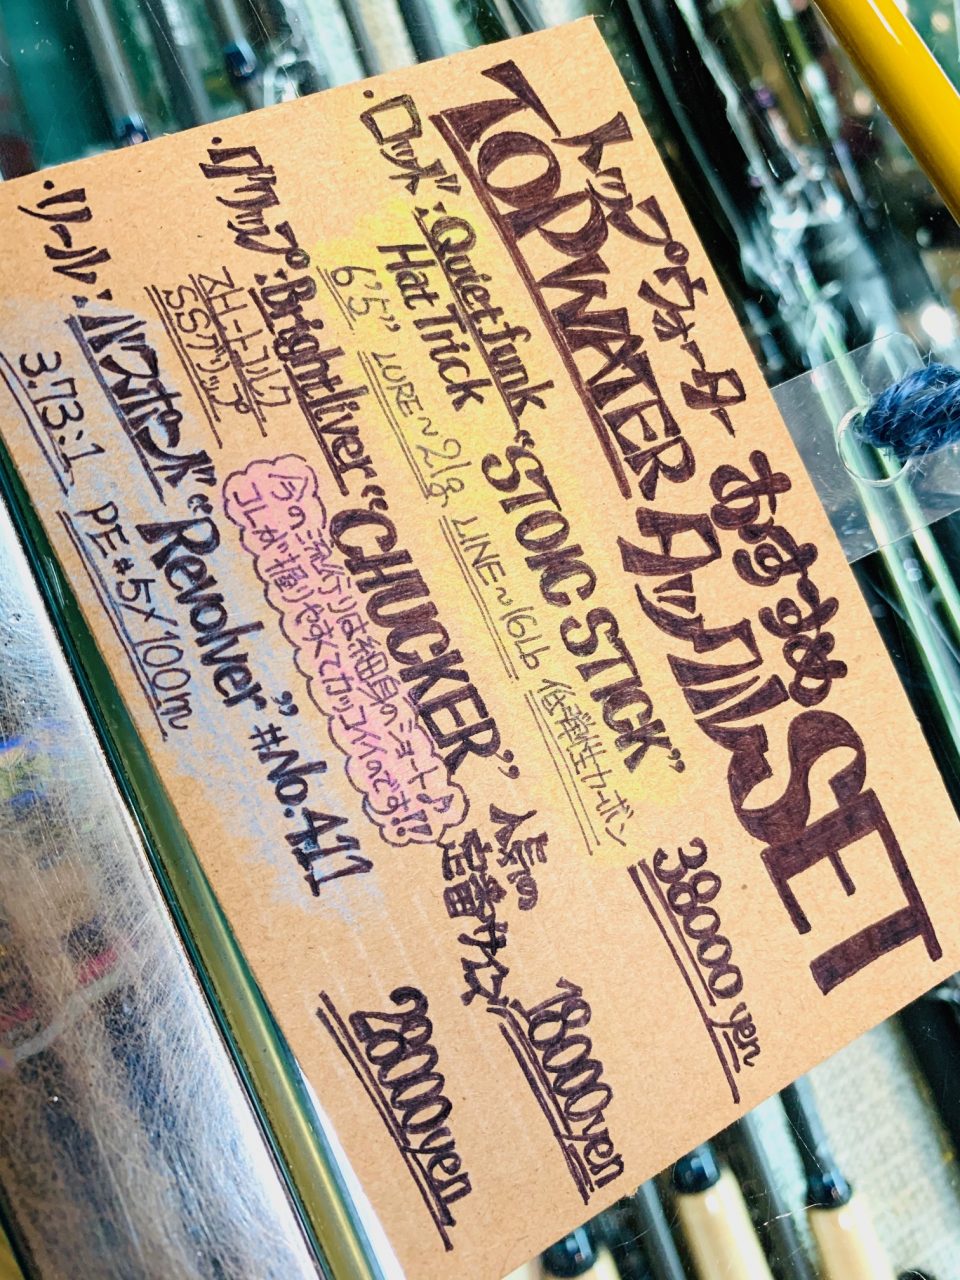 トップウォーター おすすめ
TOPWATER タックルSET
・ロッド:Quiet funk "STOIC STICK"
Hat Trick
38000 yen
6'5" LURE~21g LINE~16Lb 低弾性カーボン
・グリップ:Bright liver "CHUCKER"
定番サイズ
18000yen
ストレート
SSグリップ
今の流行りは細身のショート♪
コレが握りやすくてカッコイイのです!!
・リール:バスポンド "Revolver" #No.411
28000yen
3.73:1 PE#5×100m